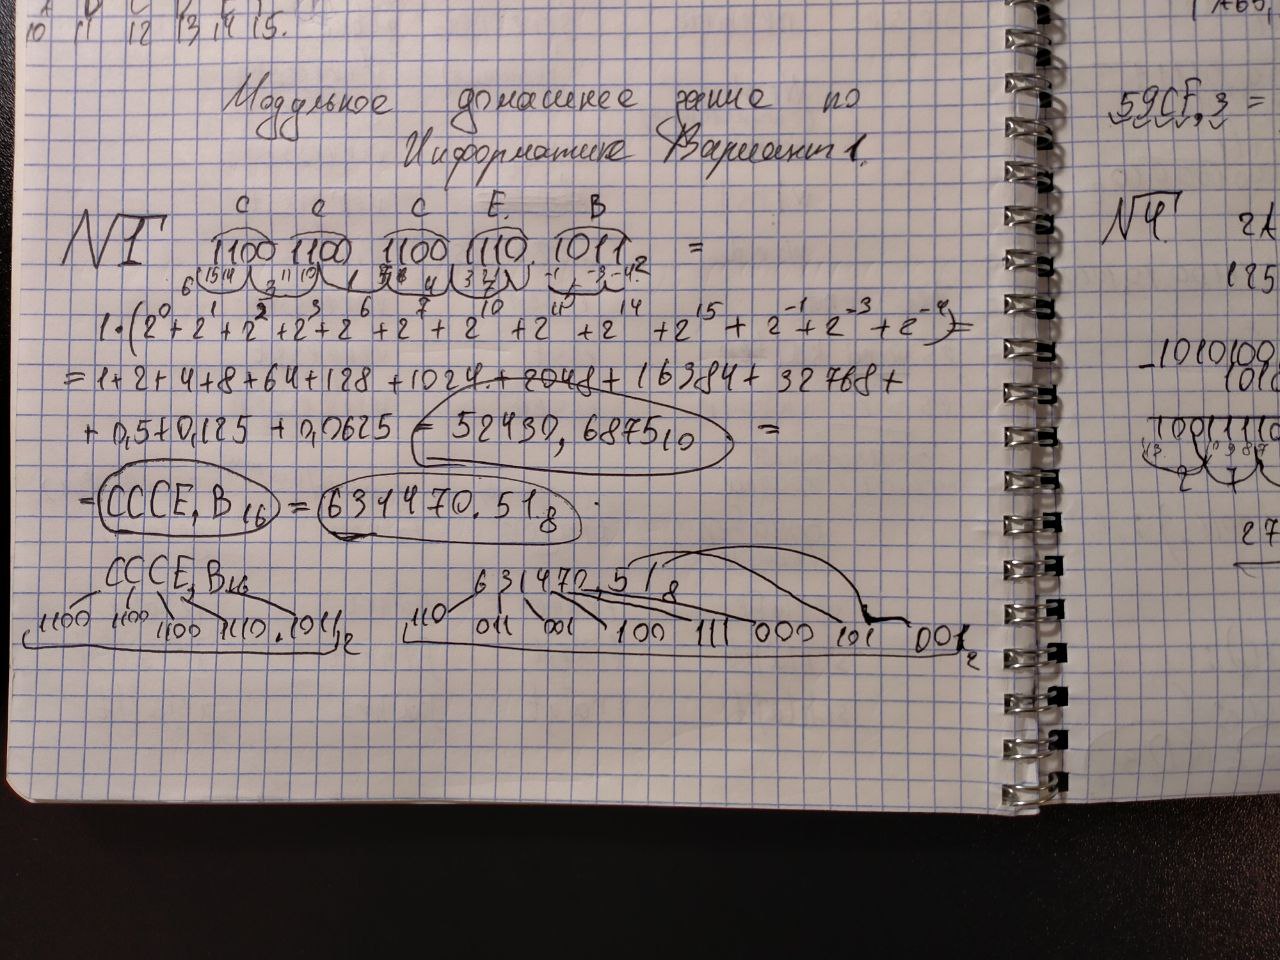 10 11 12 13 14 15.
Модульное домашнее задние по
Информатике Вариант 1.
C C C E. B
N1 1100 1100 1100 1110. 1011 2 =
1·(2^0+2^1+2^2+2^3+2^6+2^7+2^10+2^11+2^14+2^15+2^-1+2^-3+2^-4)=
=1+2+4+8+64+128+1024+2048+16384+32768+
+0,5+0,125+0,0625 = 52430,6875 10 =
=CCCE,B 16 = 631470.51 8
CCCE,B 16
1100 1100 1100 1110.1011 2
631470,51 8
110 011 001 100 111 000 101 001 2
59CF,3 =
N4. 2A
125
-1010100
1018
10011110
2 7
27